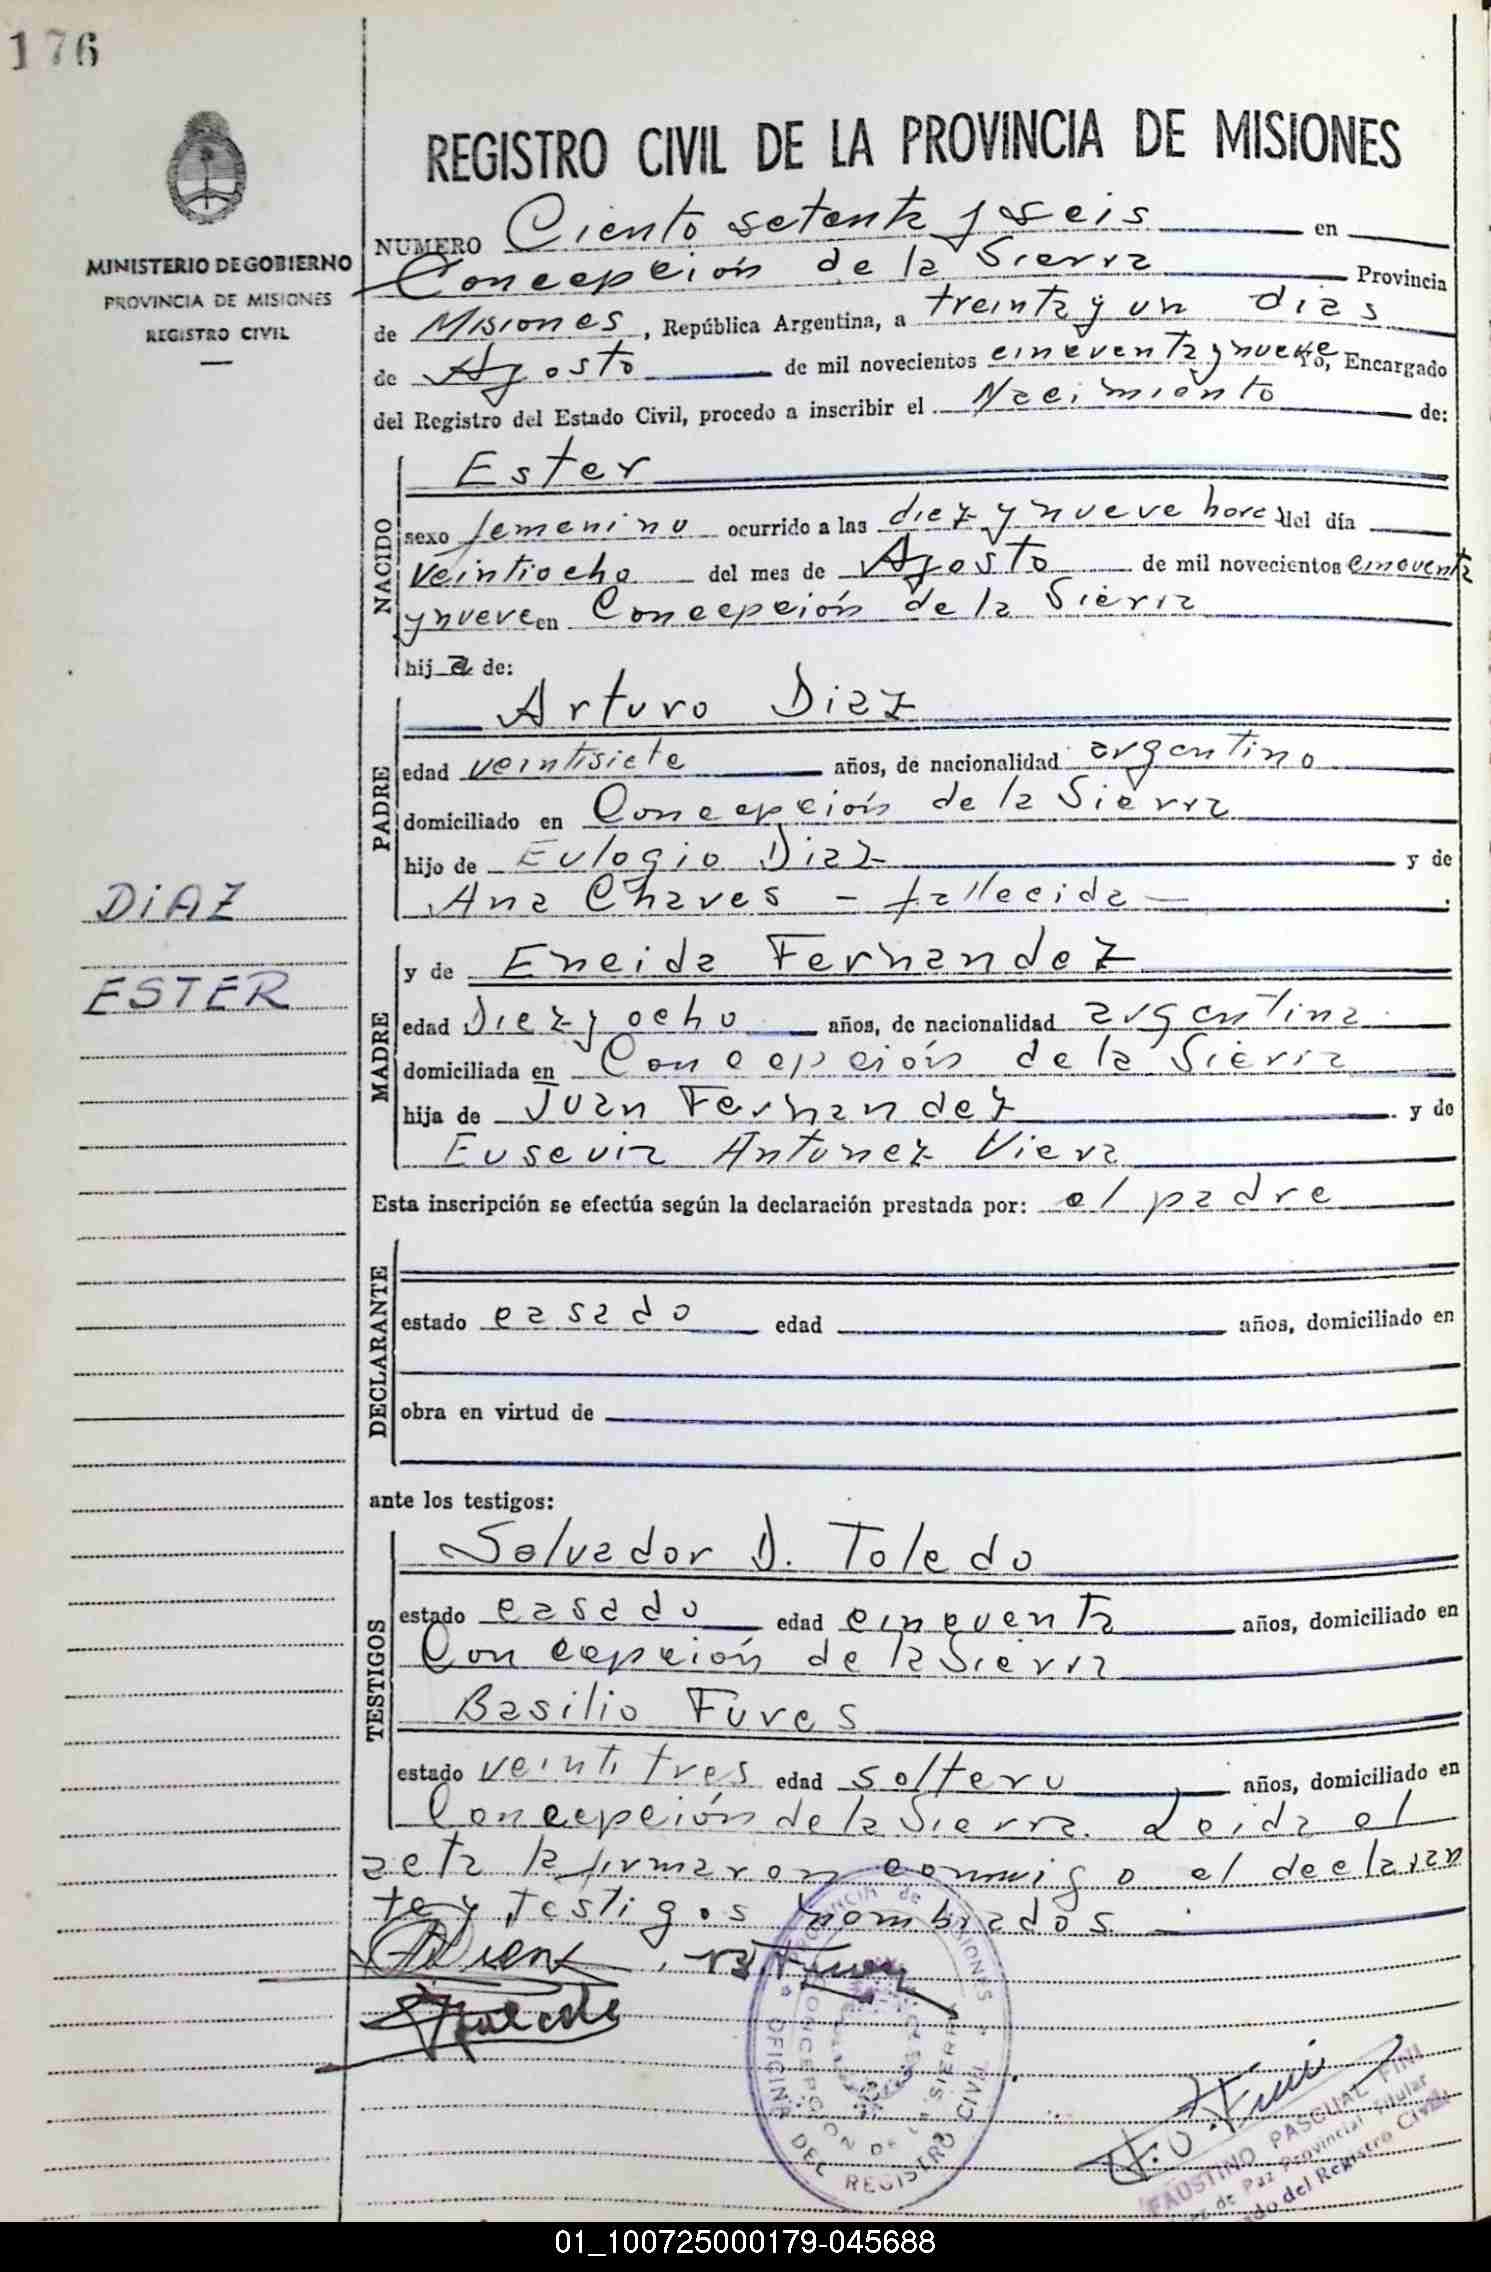 176
MINISTERIO DE GOBIERNO
PROVINCIA DE MISIONES
REGISTRO CIVIL
REGISTRO CIVIL DE LA PROVINCIA DE MISIONES
NUMERO Ciento setenta y seis en
Concepción de la Sierra Provincia
de Misiones, República Argentina, a treinta y un dias
de Agosto de mil novecientos cincuenta y nueve Yo, Encargado
del Registro del Estado Civil, procedo a inscribir el Nacimiento de:
NACIDO
Ester
sexo femenino ocurrido a las diez y nueve horas del día
veintiocho del mes de Agosto de mil novecientos cincuenta
y nueve en Concepción de la Sierra
hija de:
PADRE
Arturo Diaz
edad veintisiete años, de nacionalidad argentino
domiciliado en Concepción de la Sierra
hijo de Eulogio Diaz y de
Ana Chaves - fallecida -
DIAZ
ESTER
MADRE
y de Eneida Fernandez
edad Diez y ocho años, de nacionalidad argentina
domiciliada en Concepción de la Sierra
hija de Juan Fernandez y de
Eusevia Antunez Viera
Esta inscripción se efectúa según la declaración prestada por: el padre
DECLARANTE
estado casado edad años, domiciliado en
obra en virtud de
ante los testigos:
TESTIGOS
Salvador D. Toledo
estado casado edad cincuenta años, domiciliado en
Concepción de la Sierra
Basilio Fures
estado veintitres edad soltero años, domiciliado en
Concepción de la Sierra. Leida el
acta la firmaron conmigo el declaran
te y testigos nombrados.
PROVINCIA de MISIONES
OFICINA DEL REGISTRO CIVIL
CONCEPCION DE LA SIERRA
FAUSTINO PASCUAL FINI
de Paz Provincial Titular
del Registro Civil
01_100725000179-045688